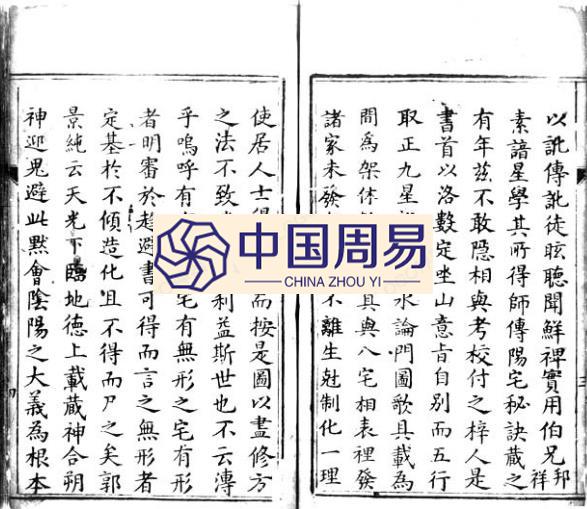 以訛傳訛徒眩聽聞鮮裨實用伯兄邦祥
素諳星學其所得師傳陽宅秘訣藏之
有年茲不敢隱相與考校付之梓人是
書首以洛數定坐山意旨自別而五行
取正九星 水論門圖歌具載為
間為架休 具與八宅相表裡發
諸家未發 不離生尅制化一理
使居人士得 而按是圖以盡修方
之法不致 利益斯世也不云溥
乎嗚呼有 宅有無形之宅有形
者明審於趨避書可得而言之無形者
定基於不傾造化且不得而尸之矣郭
景純云天光下臨地德上載藏神合朔
神迎鬼避此黙會陰陽之大義為根本
中国周易
CHINA ZHOU YI